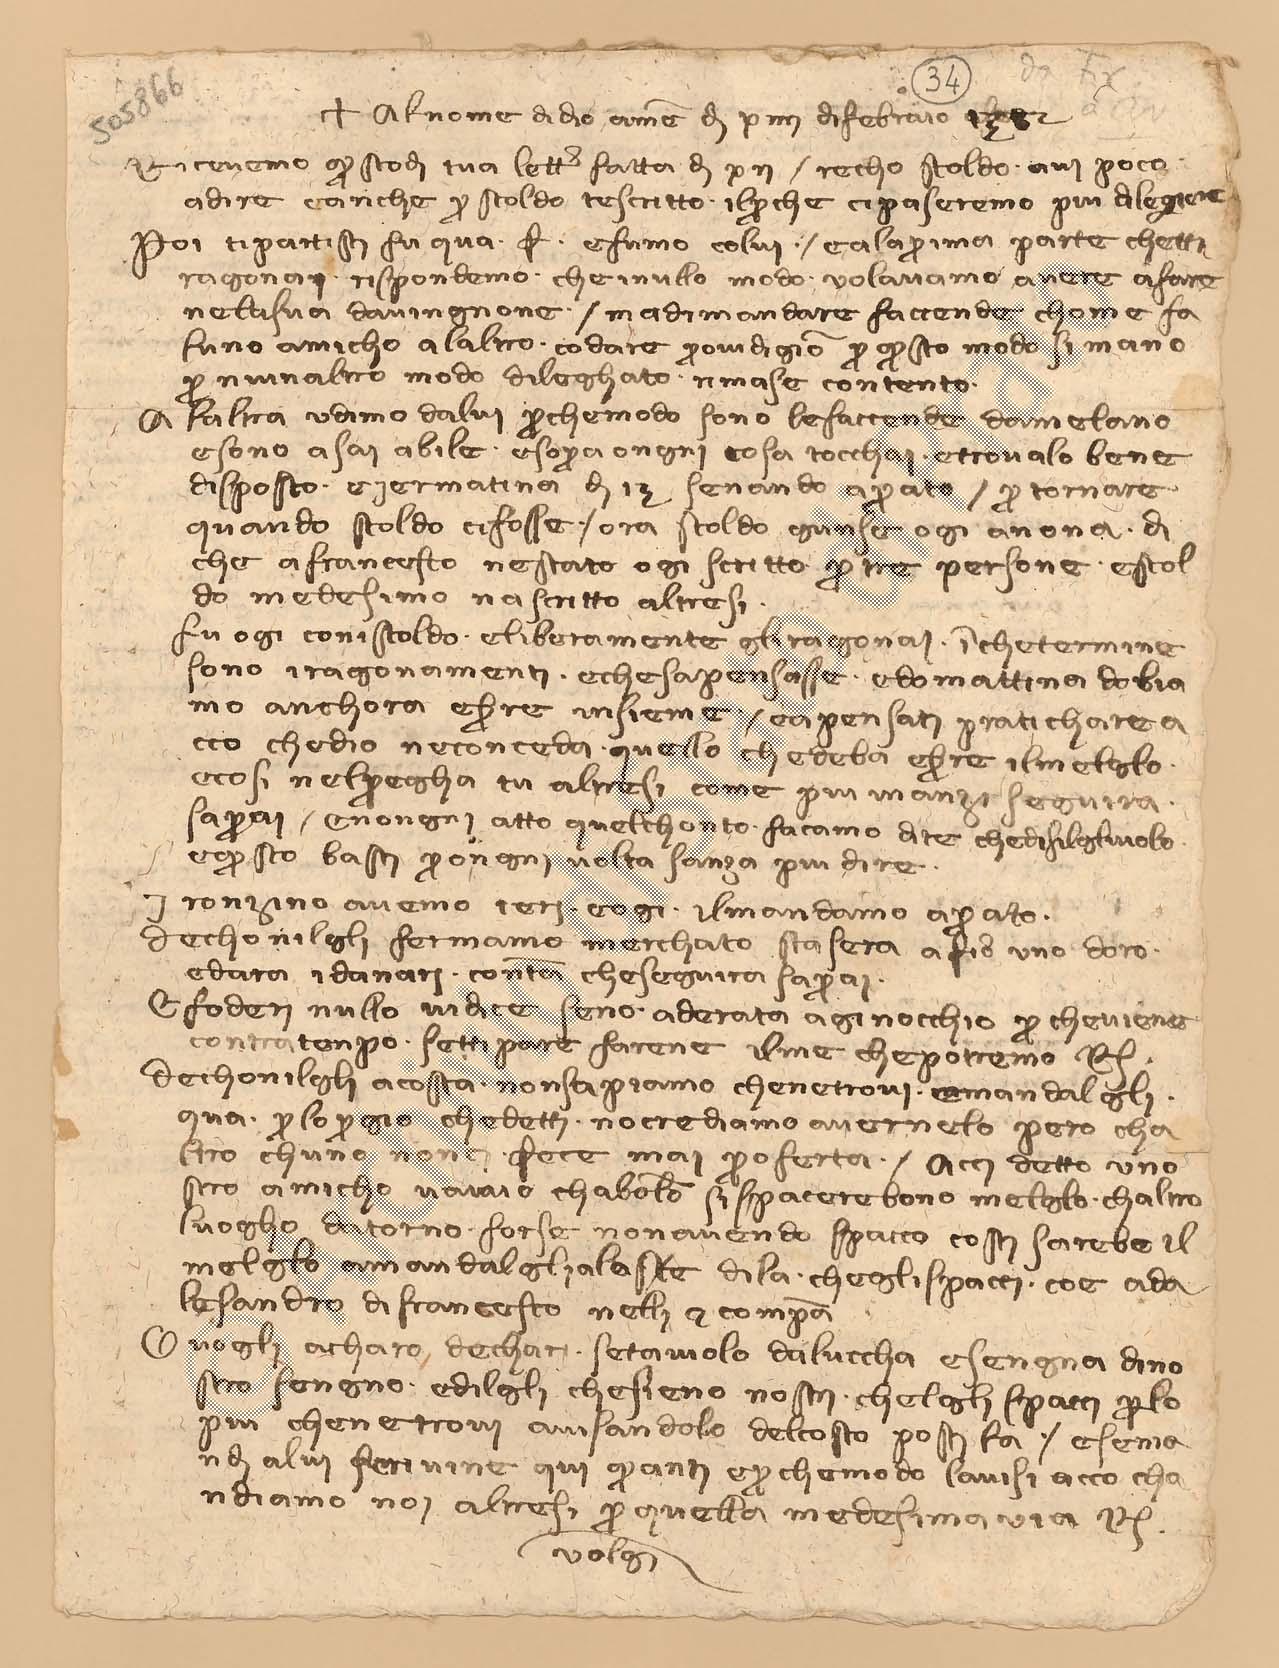 505866
34
+ Al nome di dio amē dj p iiij di febraio
Ricevemo questo dj tua lettã fatta dj p ij / recho stoldo . avi poco
a dire e anche p stoldo te scritto . il p che ci paseremo piu di legiere
Poi ti partisti fu qua . f . e fumo co lui . / e a la prima parte che tti
ragonai . rispondemo . che inullo modo volavamo avere a fare
nela sua da vingnone . / ma dimandare faccende chome fa
l uno amicho a l altro . co dare providigiō p questo modo si mano
p niun altro modo di leghato . rimase contento .
A l altra udimo da lui p che modo sono le faccende da melano
e sono asai abile . e sopra ongni cosa tocchai . e trovalo bene
disposto . e jermatina dj 13 se n ando a prato / p tornare
quando stoldo ci fosse . / ora stoldo gunse ogi a nona . di
che a francescho n e stato ogi scritto p tre persone . e stol
do medesimo n a scritto altresi .
fu ogi con istoldo . e liberamente gli ragonai . ī che termine
sono i ragonamenti . e che s a pensasse . e domattina dobia
mo anchora essere insieme / e a pensati pratichare a
cco che dio ne conceda . quello che deba essere il melglo .
e cosi nel pregha tu altresi come piu inanzi seguira .
saprai / e n ongni atto quel chonto . facamo di te che di filgluolo
e questo basti p ongni volta sanza piu dire .
I ronzino avemo ieri . e ogi . il mandamo a prato .
de chonilgli fermamo merchato stasera a fio uno d oro .
e dara i danari . contā che seguira saprai .
E foderi nullo vi dice se no . a derata a ginocchio p che viene
contra tempo . se tti pare farene il me che potremo Rī .
de chonilgli a costa . non sapiamo che ne trovi . e mandalgli .
qua . p lo pregio che detti . no crediamo avernelo pero ch a
ltro ch uno non fece mai proferta . / Acci detto uno
stro amicho vaiaio ch a bolō si spacerebono melglo . ch altro
luogho ditorno . forse non avendo spacco costi sarebe il
melglo a mandalgli a la di la . che gli spacci . coe ad a
lesandro di francescho nelli e compā
E vogli a charo de chari . se tavolo da luccha e sengna di no
stro sengno . e dilgli che sieno nostri . che l gli spacci p lo
piu che ne trovi avisandolo del costo posti la . / e se ma
ndj a lui scrivine qui quanti e p che modo l avisi acco ch a
ndiamo noi altresi p quella medesima via Rī .
volgi